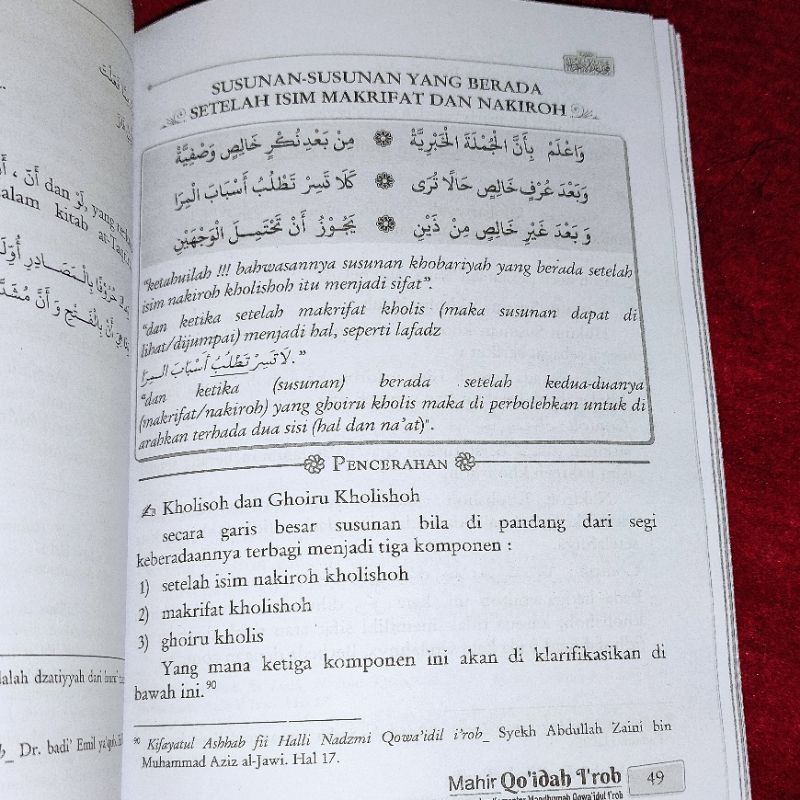 SUSUNAN-SUSUNAN YANG BERADA
SETELAH ISIM MAKRIFAT DAN NAKIROH
وَاعْلَمْ بِأَنَّ الْجُمْلَةَ الْخَبْرِيَّةْ مِنْ بَعْدِ نُكْرٍ خَالِصٍ وَصْفِيَّةْ
وَبَعْدَ عُرْفٍ خَالِصٍ حَالًا تُرَى كَلَا تَسِرْ تَطْلُبُ أَسْبَابَ الْمِرَا
وَ بَعْدَ غَيْرِ خَالِصٍ مِنْ ذَيْنِ يَجُوْزُ أَنْ تَحْتَمِلَ الْوَجْهَيْنِ
"ketahuilah !!! bahwasannya susunan khobariyah yang berada setelah
isim nakiroh kholishoh itu menjadi sifat".
"dan ketika setelah makrifat kholis (maka susunan dapat di
lihat/dijumpai) menjadi hal, seperti lafadz
لَا تَسِرْ تَطْلُبُ أَسْبَابَ الْمِرَا."
"dan ketika (susunan) berada setelah kedua-duanya
(makrifat/nakiroh) yang ghoiru kholis maka di perbolehkan untuk di
arahkan terhada dua sisi (hal dan na'at)".
PENCERAHAN
✍ Kholisoh dan Ghoiru Kholishoh
secara garis besar susunan bila di pandang dari segi
keberadaannya terbagi menjadi tiga komponen :
1) setelah isim nakiroh kholishoh
2) makrifat kholishoh
3) ghoiru kholis
Yang mana ketiga komponen ini akan di klarifikasikan di
bawah ini.90
90 Kifayatul Ashhab fii Halli Nadzmi Qowa'idil i'rob_ Syekh Abdullah Zaini bin
Muhammad Aziz al-Jawi. Hal 17.
Mahir Qo'idah I'rob 49
أَنّ dan لَوْ, yang
salam kitab
dzatiyyah dari
Dr. badi' Emil